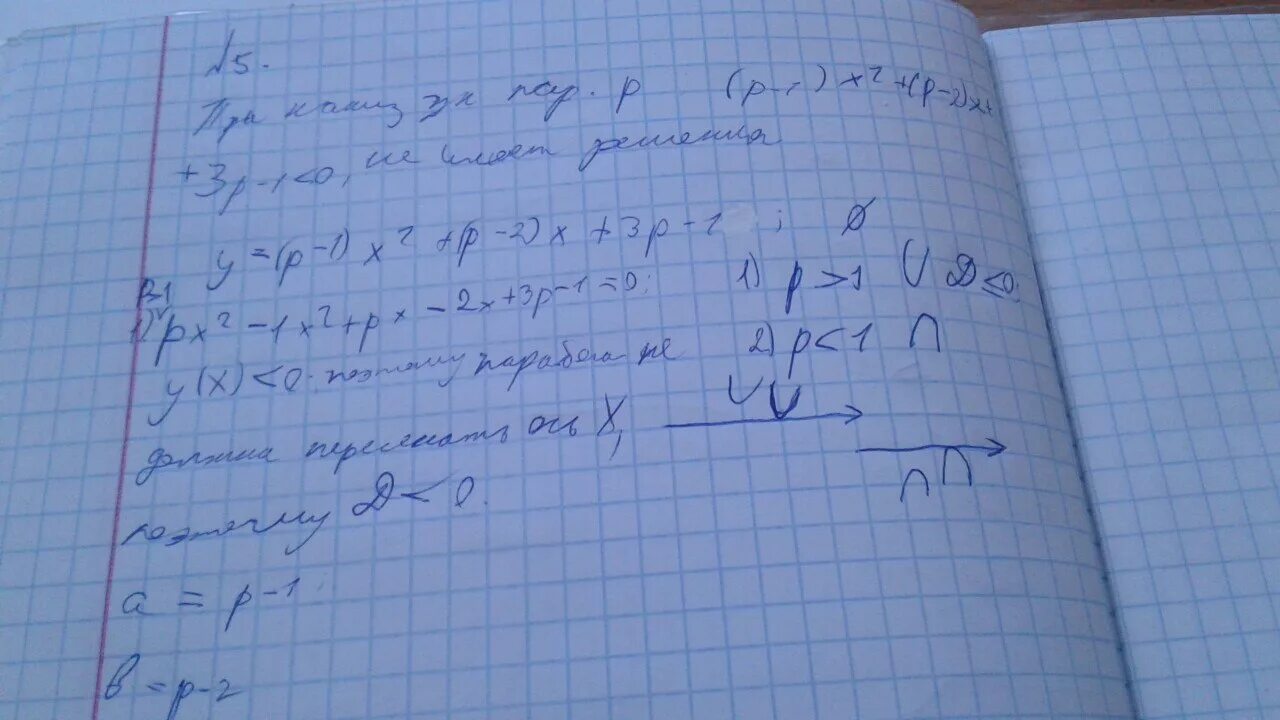 №5.
При каких зн пар. p (p-1)x²+(p-2)x+
+3p-1<0, не имеет решения
y=(p-1)x²+(p-2)x+3p-1 ; Ø
1) px²-1x²+px-2x+3p-1=0; 1) p>1 ∪ D≤0;
y(x)<0 поэтому парабола не 2) p<1 ∩
должна пересекать ось X,
поэтому D<0.
a = p-1
b = p-2